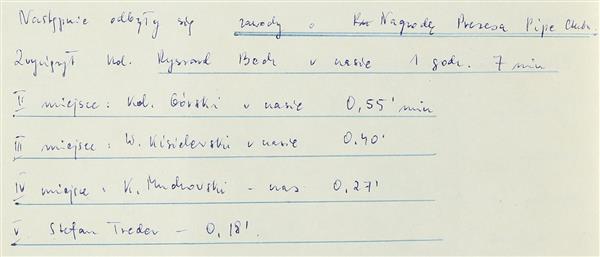 Następnie odbyły się zawody o Nagrodę Prezesa Pipe Clubu.
Zwyciężył kol. Ryszard Bach w czasie 1 godz. 7 min
II miejsce: kol. Górski w czasie 0,55' min
III miejsce: W. Kisielewski w czasie 0.40'
IV miejsce: K. Mrukowski - czas 0,27'
V. Stefan Treder — 0,18'.